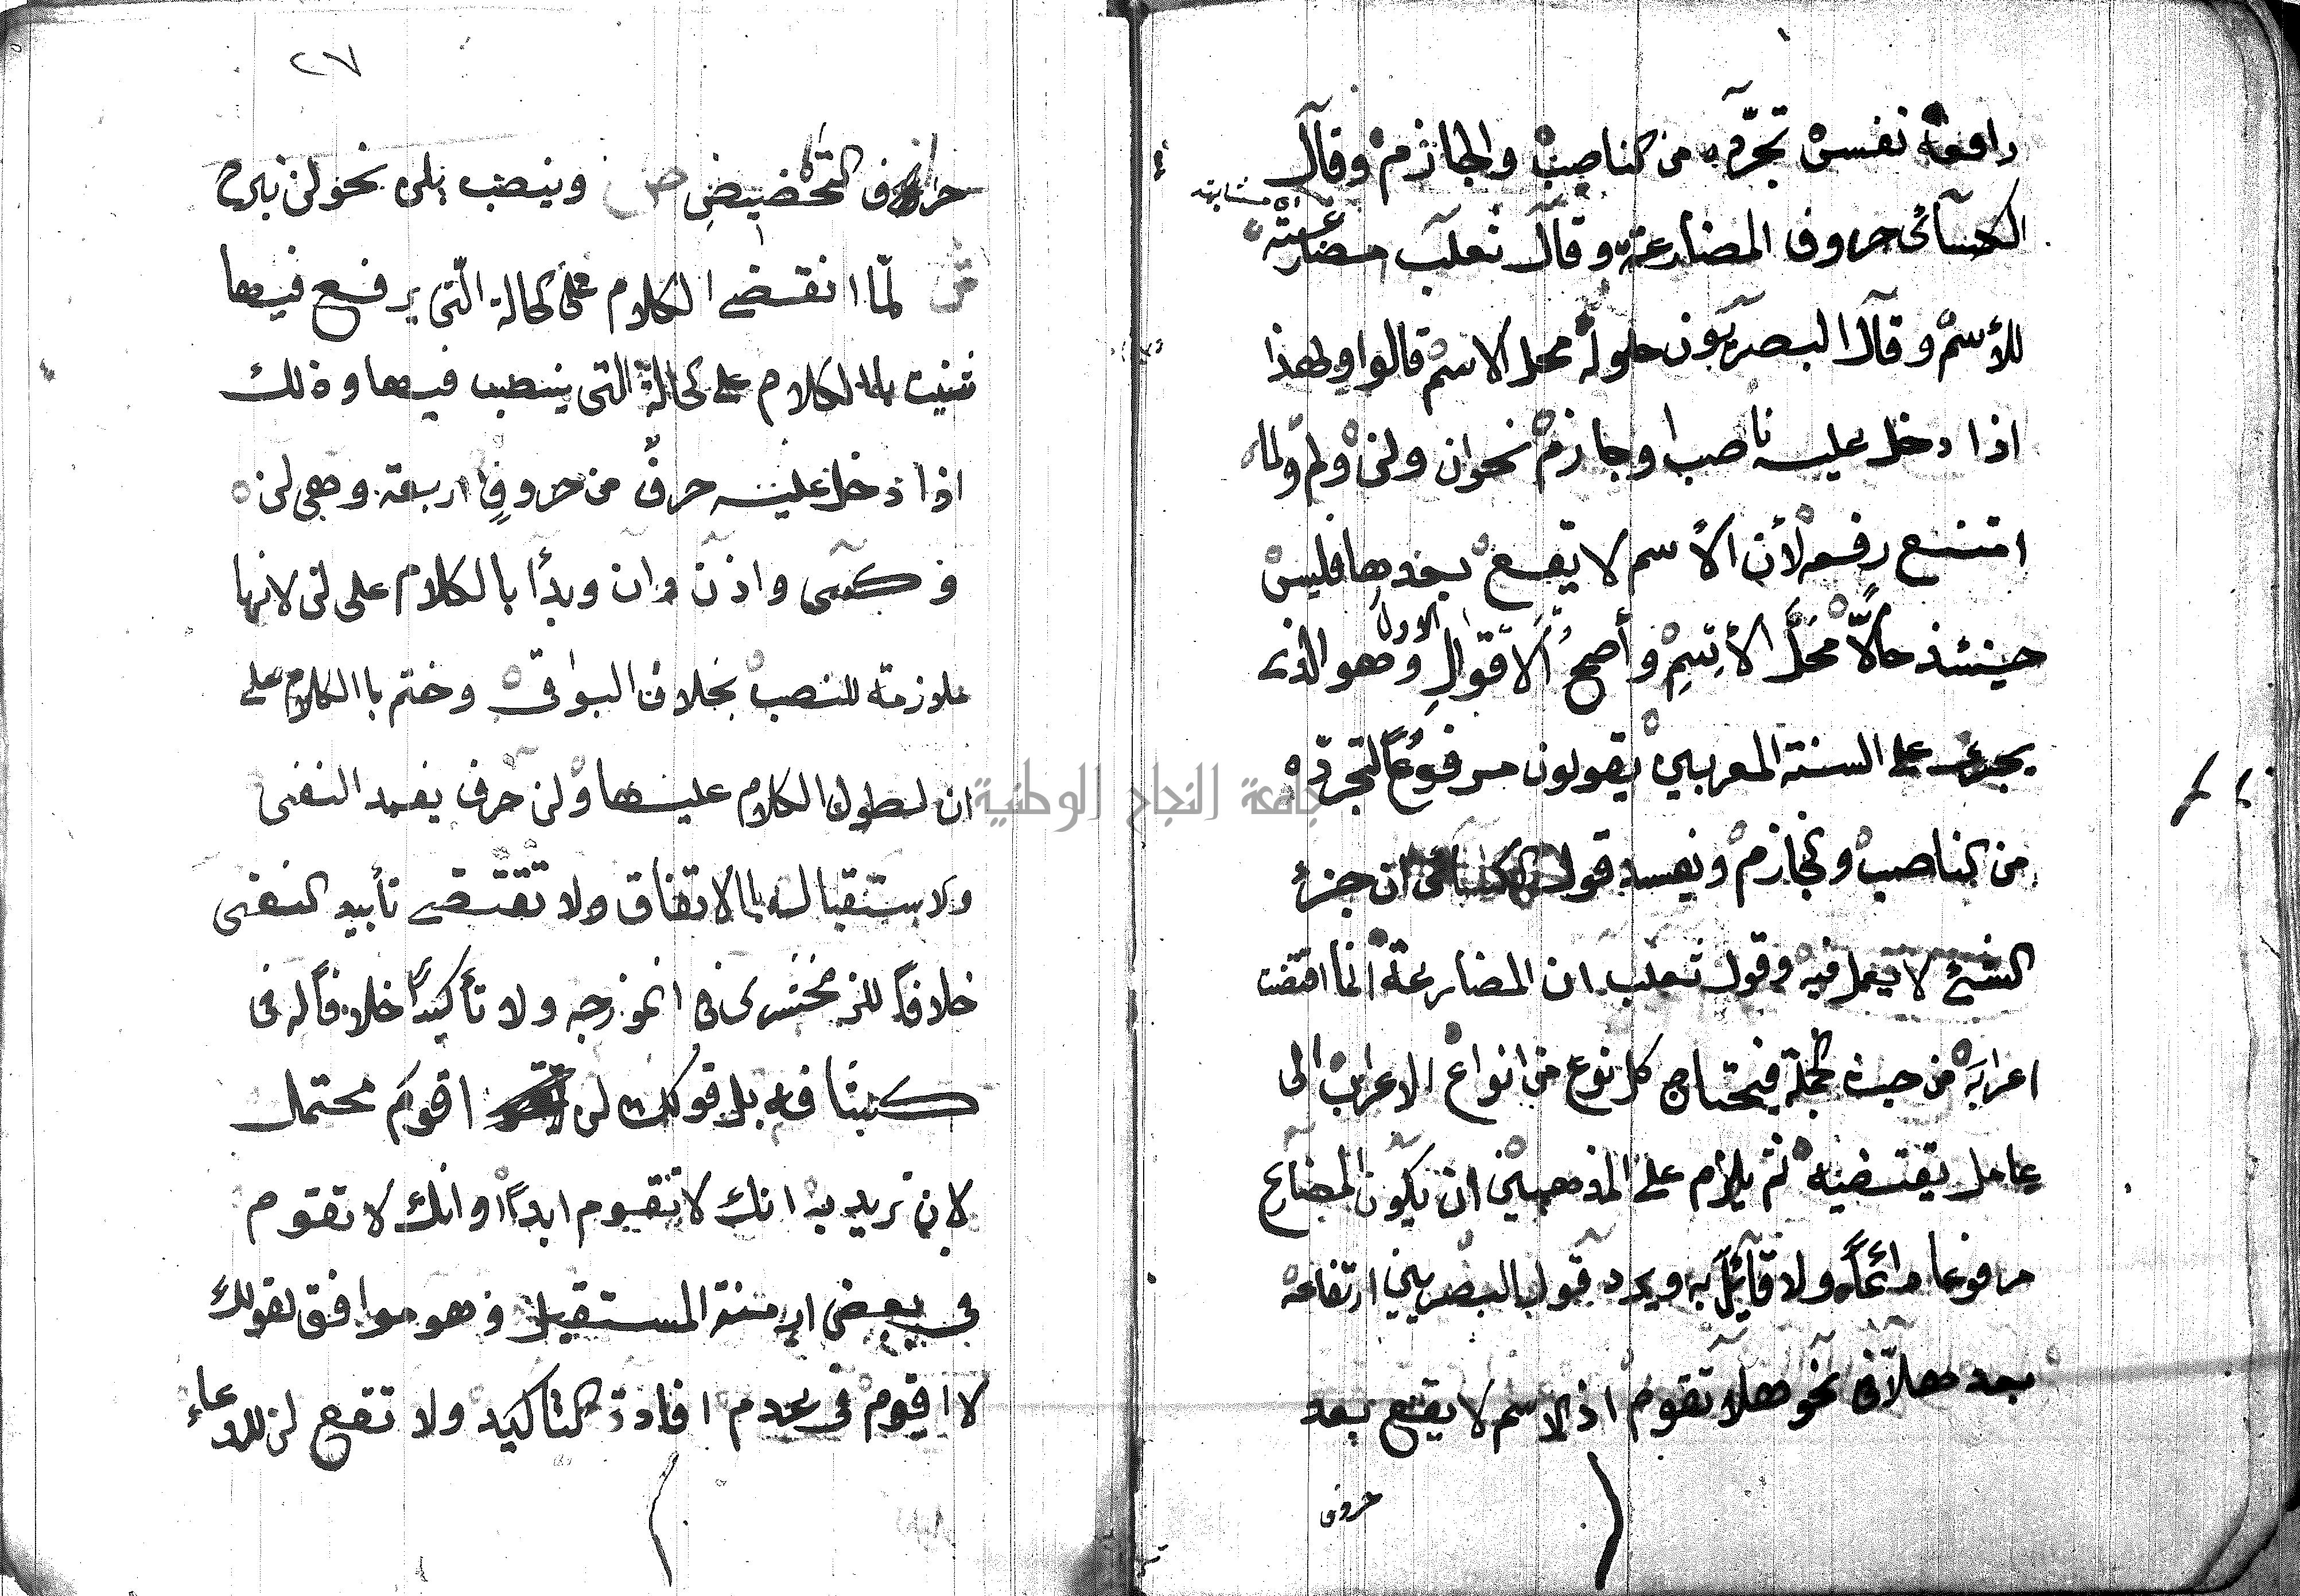 رافعه نفس تجرده من الناصب والجازم وقال
مشابهته
الكسائى حروف المضارعة وقال ثعلب مضارعته
للأسم وقال البصريون حلوله محل الاسم قالوا ولهذا
اذا دخل عليه ناصب او جازم نحو ان ولن ولم ولما
امتنع رفعه لأن الأسم لا يقع بعدها فليس
حينئذ حالّاً مَحَلَّ الأسم وأصح الاقوال الاول وهو الذى
يجرى على السنة المعربين يقولون مرفوعاً لتجرّده
من الناصب والجازم ويفسد قول الكسائى ان جزء
الشئ لا يعمل فيه وقول ثعلب ان المضارعة انما اقتضت
اعرابه من حيث الجملة فيحتاج كل نوع من انواع الاعراب الى
عامل يقتضيه ثم يلزم على المذهبين ان يكون المضارع
مرفوعا دائماً ولا قائل به ويرد قول البصريين ارتفاعه
بعد هلّا فى نحو هلا تقوم اذ الاسم لا يقع بعد
حروف
٢٧
حروف التحضيض ص وينصب بلن نحو لن نبرح
ش لمّا انقضى الكلام على الحالة الّتى يرفع فيها
ثنيت بالكلام على الحالة التى ينصب فيها وذلك
اذا دخل عليه حرفٌ من حروفٍ اربعة وهى لن
وكى واذن وان وبدأ بالكلام على لن لانها
ملازمة للنصب بخلاف البواقى وختم بالكلام على
ان لطول الكلام عليها ولن حرف يفيد النفى
والاستقبال بالاتفاق ولا تقتضى تأبيد النفى
خلافاً للزمخشرى فى انموذجه ولا تأكيداً خلافاً له فى
كشافه بل قولك لن اقوم محتمل
لان تريد به انك لا تقوم ابداً او انك لا تقوم
فى بعض ازمنة المستقبل وهو موافق لقولك
لا اقوم فى عدم افادة التاكيد ولا تقع لن للدعاء
جامعة النجاح الوطنية